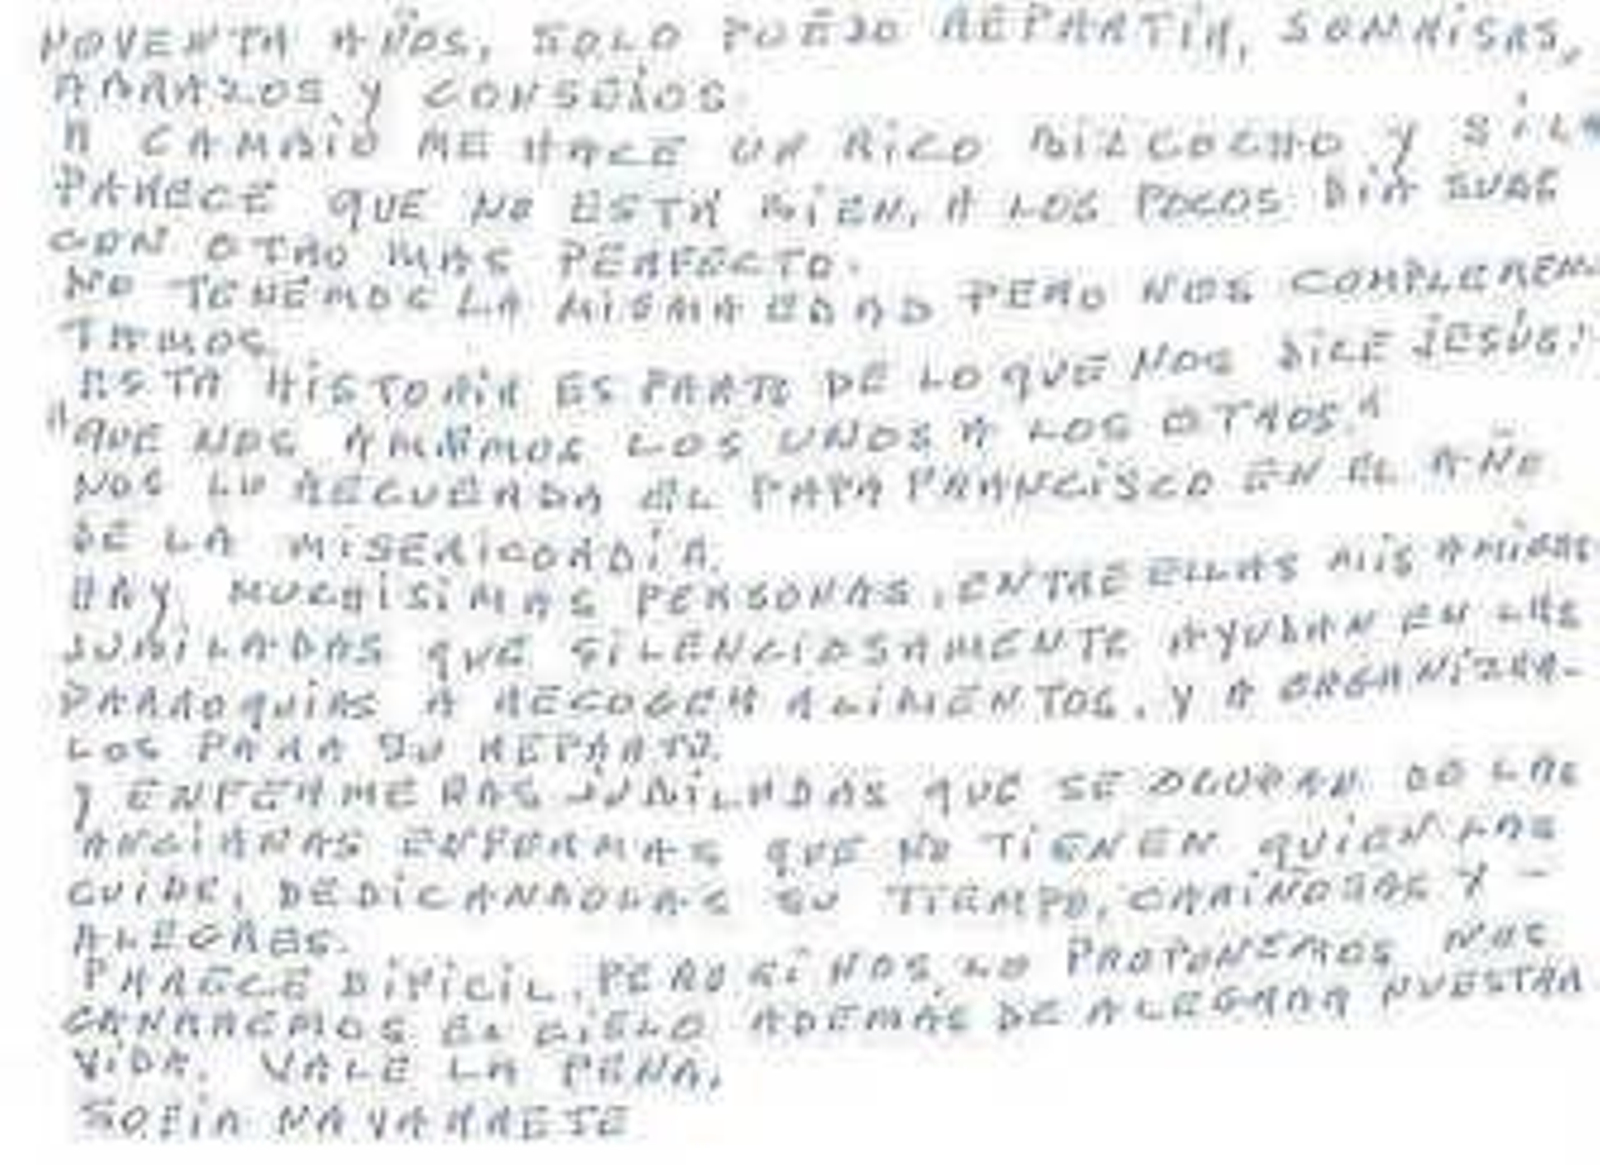 NOVENTA AÑOS, SOLO PUEDO REPARTIR, SONRISAS,
ABRAZOS Y CONSEJOS.
A CAMBIO ME HACE UN RICO BIZCOCHO Y SI LE
PARECE QUE NO ESTA BIEN, A LOS POCOS DIA SUBE
CON OTRO MAS PERFECTO.
NO TENEMOS LA MISMA EDAD PERO NOS COMPLEMEN-
TAMOS.
ESTA HISTORIA ES PARTE DE LO QUE NOS DICE JESÚS:
"QUE NOS AMEMOS LOS UNOS A LOS OTROS."
NOS LO RECUERDA EL PAPA FRANCISCO EN EL AÑO
DE LA MISERICORDIA.
HAY MUCHISIMAS PERSONAS, ENTRE ELLAS MIS AMIGAS
JUBILADAS QUE SILENCIOSAMENTE AYUDAN EN LAS
PARROQUIAS A RECOGER ALIMENTOS, Y A ORGANIZAR-
LOS PARA SU REPARTO.
Y ENFERMERAS JUBILADAS QUE SE OCUPAN DE LAS
ANCIANAS ENFERMAS QUE NO TIENEN QUIEN LAS
CUIDE, DEDICANDOLAS SU TIEMPO, CARIÑOSAS Y -
ALEGRES.
PARECE DIFICIL, PERO SI NOS LO PROPONEMOS NOS
GANAREMOS EL CIELO ADEMÁS DE ALEGRAR NUESTRA
VIDA. VALE LA PENA.
SOFIA NAVARRETE